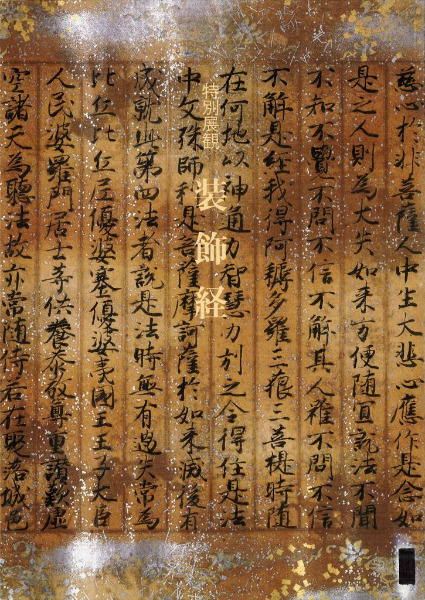 特別展観 装飾経
慈心於非菩薩人中生大悲心應作是念如
是之人則為大失如来方便随宜說法不聞
不知不覺不問不信不解其人雖不問不信
不解是経我得阿耨多羅三藐三菩提時随
在何地以神通力智慧力引之令得住是法
中文殊師利是菩薩摩訶薩於如来滅後有
成就此第四法者說是法時無有過失常為
比丘比丘尼優婆塞優婆夷國王王子大臣
人民婆羅門居士等供養恭敬尊重讃歎虚
空諸天為聽法故亦常随侍若在聚落城邑